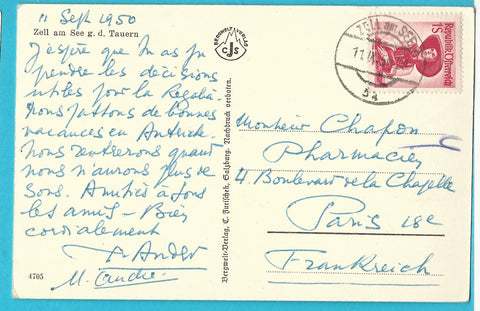 11 Sept 1950
Zell am See g. d. Tauern
J'espère que tu as pu
prendre les décisions
utiles pour la
Nous passons de bonnes
vacances en Autriche
nous rentrerons quand
nous n'aurons plus de
Sous. Amitiés à tous
les amis – Bien
cordialement
M.
4705
BERGWELT VERLAG
CJS
Bergwelt-Verlag, C. Jurischek, Salzburg. Nachdruck verboten.
ZELL am SEE
11.IX.50
5a
Republik Österreich
1S
Monsieur Chapon
Pharmacien
4. Boulevard de la Chapelle
Paris 18e
Frankreich